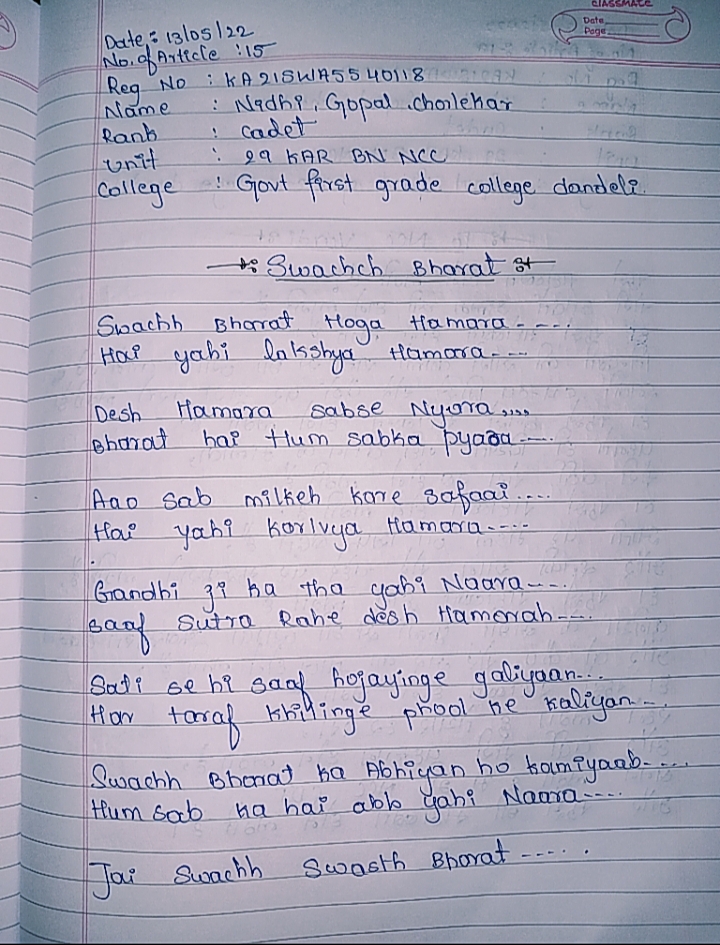 CLASSMATE
Date
Page
Date : 13/05/22
No. of Article : 15
Reg No : KA21SWA5540118
Name : Nidhi . Gopal . cholekar
Rank : cadet
Unit : 29 KAR BN NCC
College : Govt first grade college dandeli.
Swachch Bharat
Swachh Bharat Hoga Hamara -----
Hai yahi lakshya Hamara----
Desh Hamara sabse Nyara ,,,,
Bharat hai Hum sabka pyaaa ----
Aao sab milkeh kare safaai ....
Hai yahi Kortvya Hamara-----
Gandhi ji ka tha yahi Naara----
saaf sutra Rahe desh Hamerrah----
Safi se hi saaf hojayinge galiyaan...
Har taraf khilinge phool ke kaliyan --
Swachh Bharat ka Abhiyan ho kamiyaab-----
Hum sab ka hai abb yahi Naara----
Jai Swachh Swasth Bharat ----- .